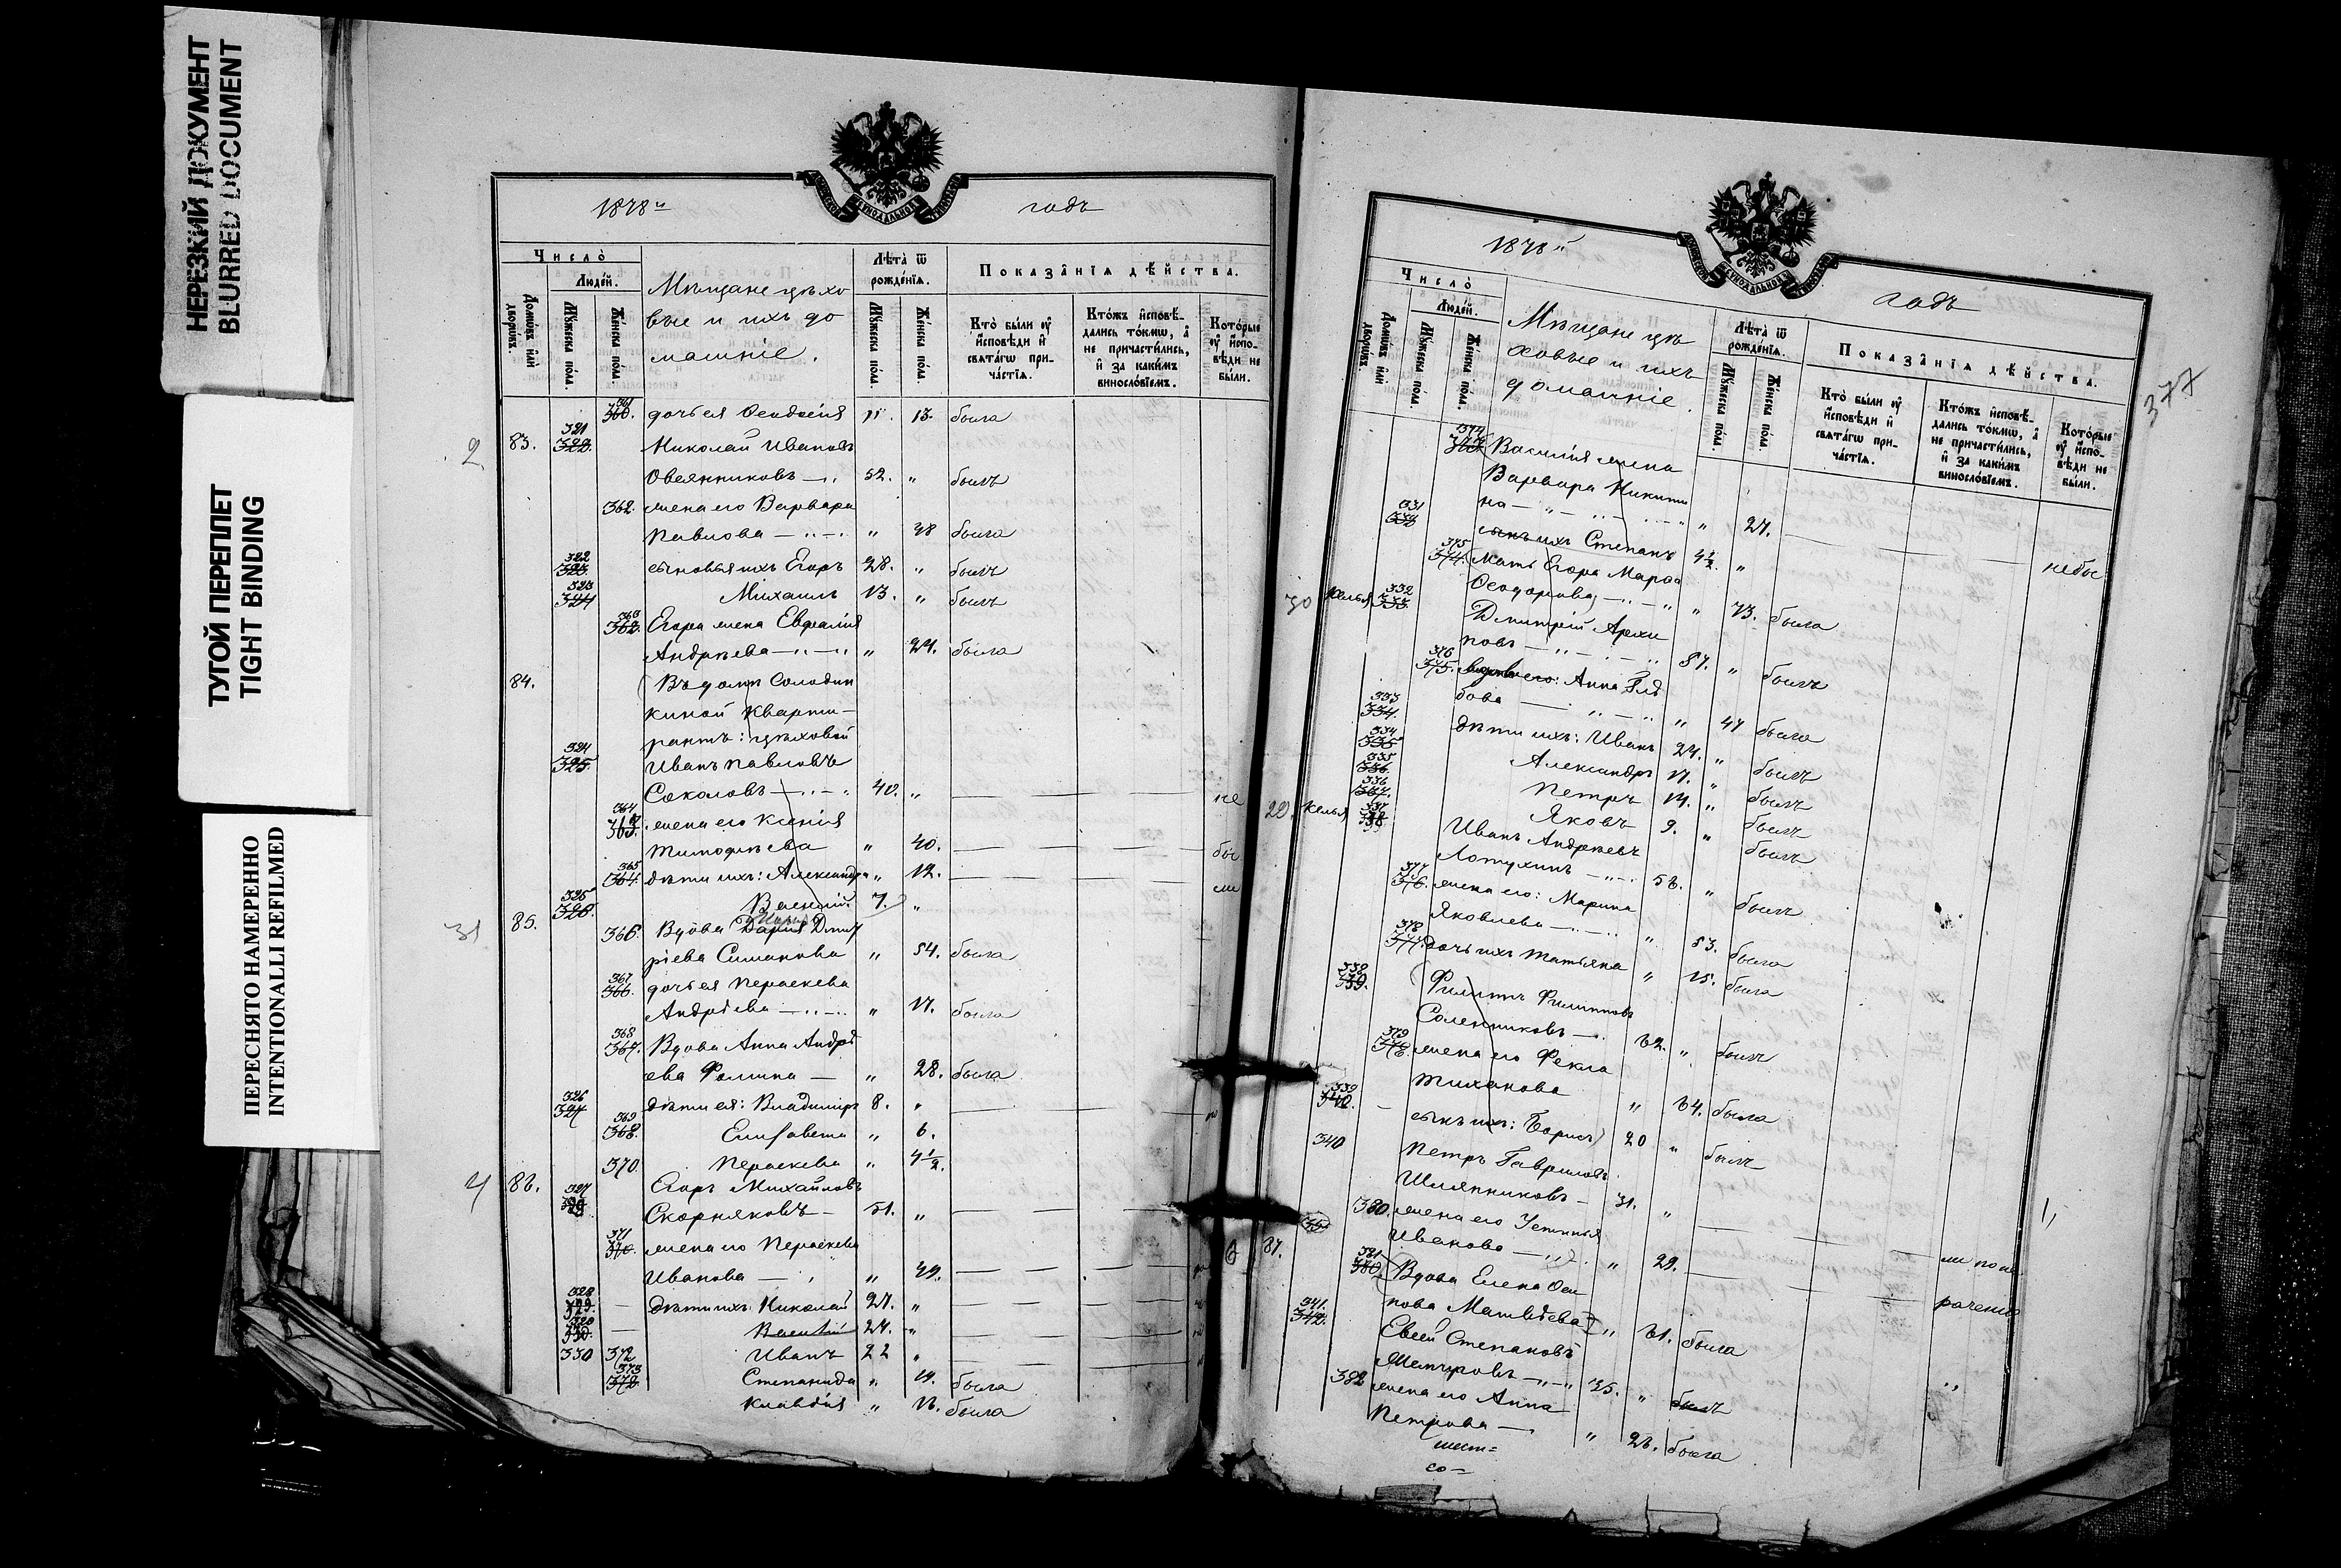 НЕРЕЗКИЙ ДОКУМЕНТ
BLURRED DOCUMENT
ТУГОЙ ПЕРЕПЛЕТ
TIGHT BINDING
ПЕРЕСНЯТО НАМЕРЕННО
INTENTIONALLI REFILMED
1878й годъ
Число̀
Люде́й.
Домѡ́въ и҆лѝ дворѡ́въ.
Мꙋ́жеска по́ла.
Же́нска по́ла.
Мѣщане цѣхо
вые и ихъ до
машніе.
Лѣ́та ѿ рожде́нїѧ.
Мꙋ́жеска по́ла.
Же́нска по́ла.
Показа̑нїѧ дѣ́йства.
Кто̀ бы́ли ᲂу҆ и҆сповѣди и҆ свѧта́гѡ причастїѧ.
Кто́жъ и҆сповѣ́дались то́кмѡ, а҆ не причасти́лись, и҆ за каки́мъ винослѡ́вїемъ.
Кото́рые ᲂу҆ и҆сповѣди не бы́ли.
361 360. дочь ея Феодосія 11. 13. была
2 83. 321 322. Николай Ивановъ
Овсянниковъ 52. " былъ
362. жена его Варвара
Павлова " 48 была
322 323 сыновья ихъ Егоръ 28. " былъ
323 324 Михаилъ 13. " былъ
363 362. Егора жена Евфалія
Андрѣева " 24. была
84. Въ домѣ Солодин
киной кварти-
рантъ: цѣховой
324 325. Иванъ Павловъ
Соколовъ 40. " не
364 363. жена его Ксенія
Тимофѣева " 40. бы
365 364. дѣти ихъ: Александра " 12. ли
325 326. Василій 7. "
31 85. 366. Вдова Дарія Дмит
ріева Симакова " 54. была
367 366. дочь ея Параскева
Андрѣева " 17. была
368 367. Вдова Анна Андрѣ
ева Фомина " 28. была
326 327 дѣти ея: Владиміръ 8. "
369 368. Елисавета " 6.
370 Параскева " 4 1/2.
4 86. 327 Егоръ Михайловъ
Скорняковъ 51. "
371 370. жена его Параскева
Иванова " 49.
328 329. дѣти ихъ: Николай 27. "
329 330. Василій 24. "
330 372 Иванъ 22 "
373 372 Степанида " 19. была
Клавдія " 16. была
1878й годъ
377
Число̀
Люде́й.
Домѡ́въ и҆лѝ дворѡ́въ.
Мꙋ́жеска по́ла.
Же́нска по́ла.
Мѣщане цѣ
ховые и ихъ
домашніе.
Лѣ́та ѿ рожде́нїѧ.
Мꙋ́жеска по́ла.
Же́нска по́ла.
Показа̑нїѧ дѣ́йства.
Кто̀ бы́ли ᲂу҆ и҆сповѣди и҆ свѧта́гѡ причастїѧ.
Кто́жъ и҆сповѣ́дались то́кмѡ, а҆ не причасти́лись, и҆ за каки́мъ винослѡ́вїемъ.
Кото́рые ᲂу҆ и҆сповѣди не бы́ли.
374 373 Василія жена
Варвара Никити
на " 27.
331 332 сынъ ихъ Степанъ 4 1/2. " небы
375 374. мать Егора Марѳа
Феодорова " 73. была
30 Келья 332 333. Дмитрій Архи
повъ 87. " былъ
376 375. его: Анна Глѣ
бова " 47 была
333 334. дѣти ихъ: Иванъ 24. " былъ
334 335 Александръ 17. " былъ
335 336 Петръ 14. " былъ
336 337. Яковъ 9. " былъ
29. Келья 337 338 Иванъ Андреевъ
Лопухинъ 56. " былъ
377 376. жена его: Марина
Яковлева " 53. была
378 377. дочь ихъ Татьяна " 15. была
338 339. Филиппъ Филипповъ
Соленниковъ 62. " былъ
379 378. жена его Фекла
Тиханова " 64. была
339 340. сынъ ихъ: Борисъ 20 " былъ
340 Петръ Гавриловъ
Шляпниковъ 31. "
380. жена его Устинья
Иванова " 29. ли по не
6 87. 381 380. Вдова Елена Оси рачению
пова Матвѣева " 61. была
341. 342. Евсей Степановъ
35. " былъ
382 жена его Анна
Петрова " 26. была
шест=
со=